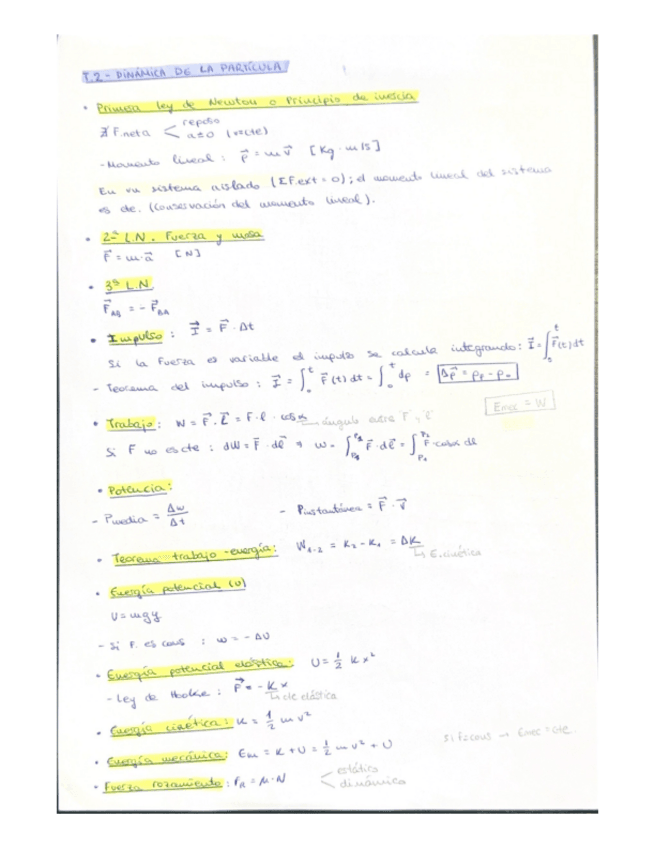 T.2 - DINÁMICA DE LA PARTÍCULA
• Primera ley de Newton o Principio de inercia
∄ F.neta < reposo
a=0 (v=cte)
- Momento lineal : p⃗ = m v⃗ [Kg · m/s]
En un sistema aislado (ΣF.ext = 0); el momento lineal del sistema
es cte. (Conservación del momento lineal).
• 2ª L.N. Fuerza y masa
F⃗ = m·a⃗ [N]
• 3ª L.N
F⃗AB = - F⃗BA
• Impulso : I⃗ = F⃗ · Δt
Si la fuerza es variable el impulso se calcula integrando: I⃗ = ∫ₒᵗ F⃗(t) dt
- Teorema del impulso : I⃗ = ∫ₒᵗ F⃗(t) dt = ∫ₒᵗ dp = Δp⃗ = pF - po
Emec = W
• Trabajo : W = F⃗ · l⃗ = F · l · cos α → ángulo entre F⃗ y l⃗
Si F no es cte : dW = F⃗ · dl⃗ → W = ∫P1P2 F⃗ · dl⃗ = ∫P1P2 F cos α dl
• Potencia:
- Pmedia = Δw/Δt - Pinstantánea = F⃗ · v⃗
• Teorema trabajo-energía: W1-2 = K2 - K1 = ΔK
↳ E.cinética
• Energía potencial (U)
U = mgy
- Si F. es cons : w = - ΔU
• Energía potencial elástica: U = 1/2 K x²
- Ley de Hooke : F⃗ = - K x
↳ cte elástica
• Energía cinética : K = 1/2 m v²
Si F cons → Emec = cte.
• Energía mecánica: Em = K + U = 1/2 m v² + U
• Fuerza rozamiento : FR = μ · N < estático
dinámico